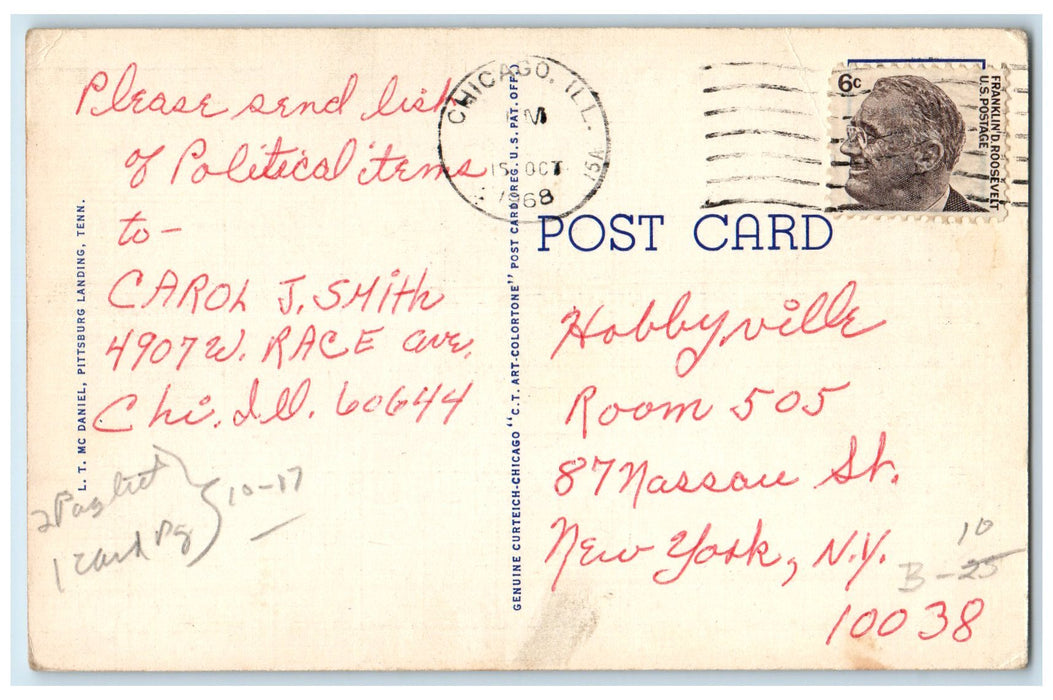 Please send list
of Political items
to-
CAROL J. SMITH
4907 W. RACE ave.
Chi. Ill. 60644
10-17
1 card pg
L. T. MC DANIEL, PITTSBURG LANDING, TENN.
GENUINE CURTEICH-CHICAGO "C. T. ART-COLORTONE" POST CARD (REG. U. S. PAT. OFF.)
CHICAGO, ILL.
PM
15 OCT
1968
15A
6c
FRANKLIN D. ROOSEVELT
U.S. POSTAGE
POST CARD
Hobbyville
Room 505
87 Nassau St.
New York, N.Y.
10038
10
B-25